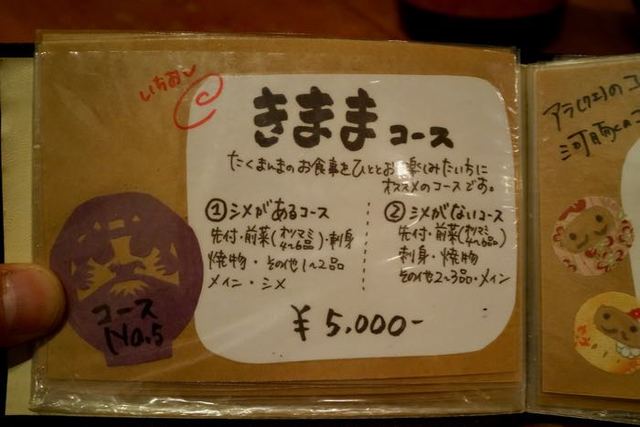 いちおし
きままコース
たくまんまのお食事をひととお楽しみたい方に
オススメのコースです。
①シメがあるコース
先付・前菜(オツマミ4〜6品)・刺身
焼物・その他1〜2品
メイン・シメ
②シメがないコース
先付・前菜(オツマミ4〜6品)
刺身・焼物
その他2〜3品・メイン
¥5.000-
コース
No.5
アラ(クエ)のコ
河豚のコ